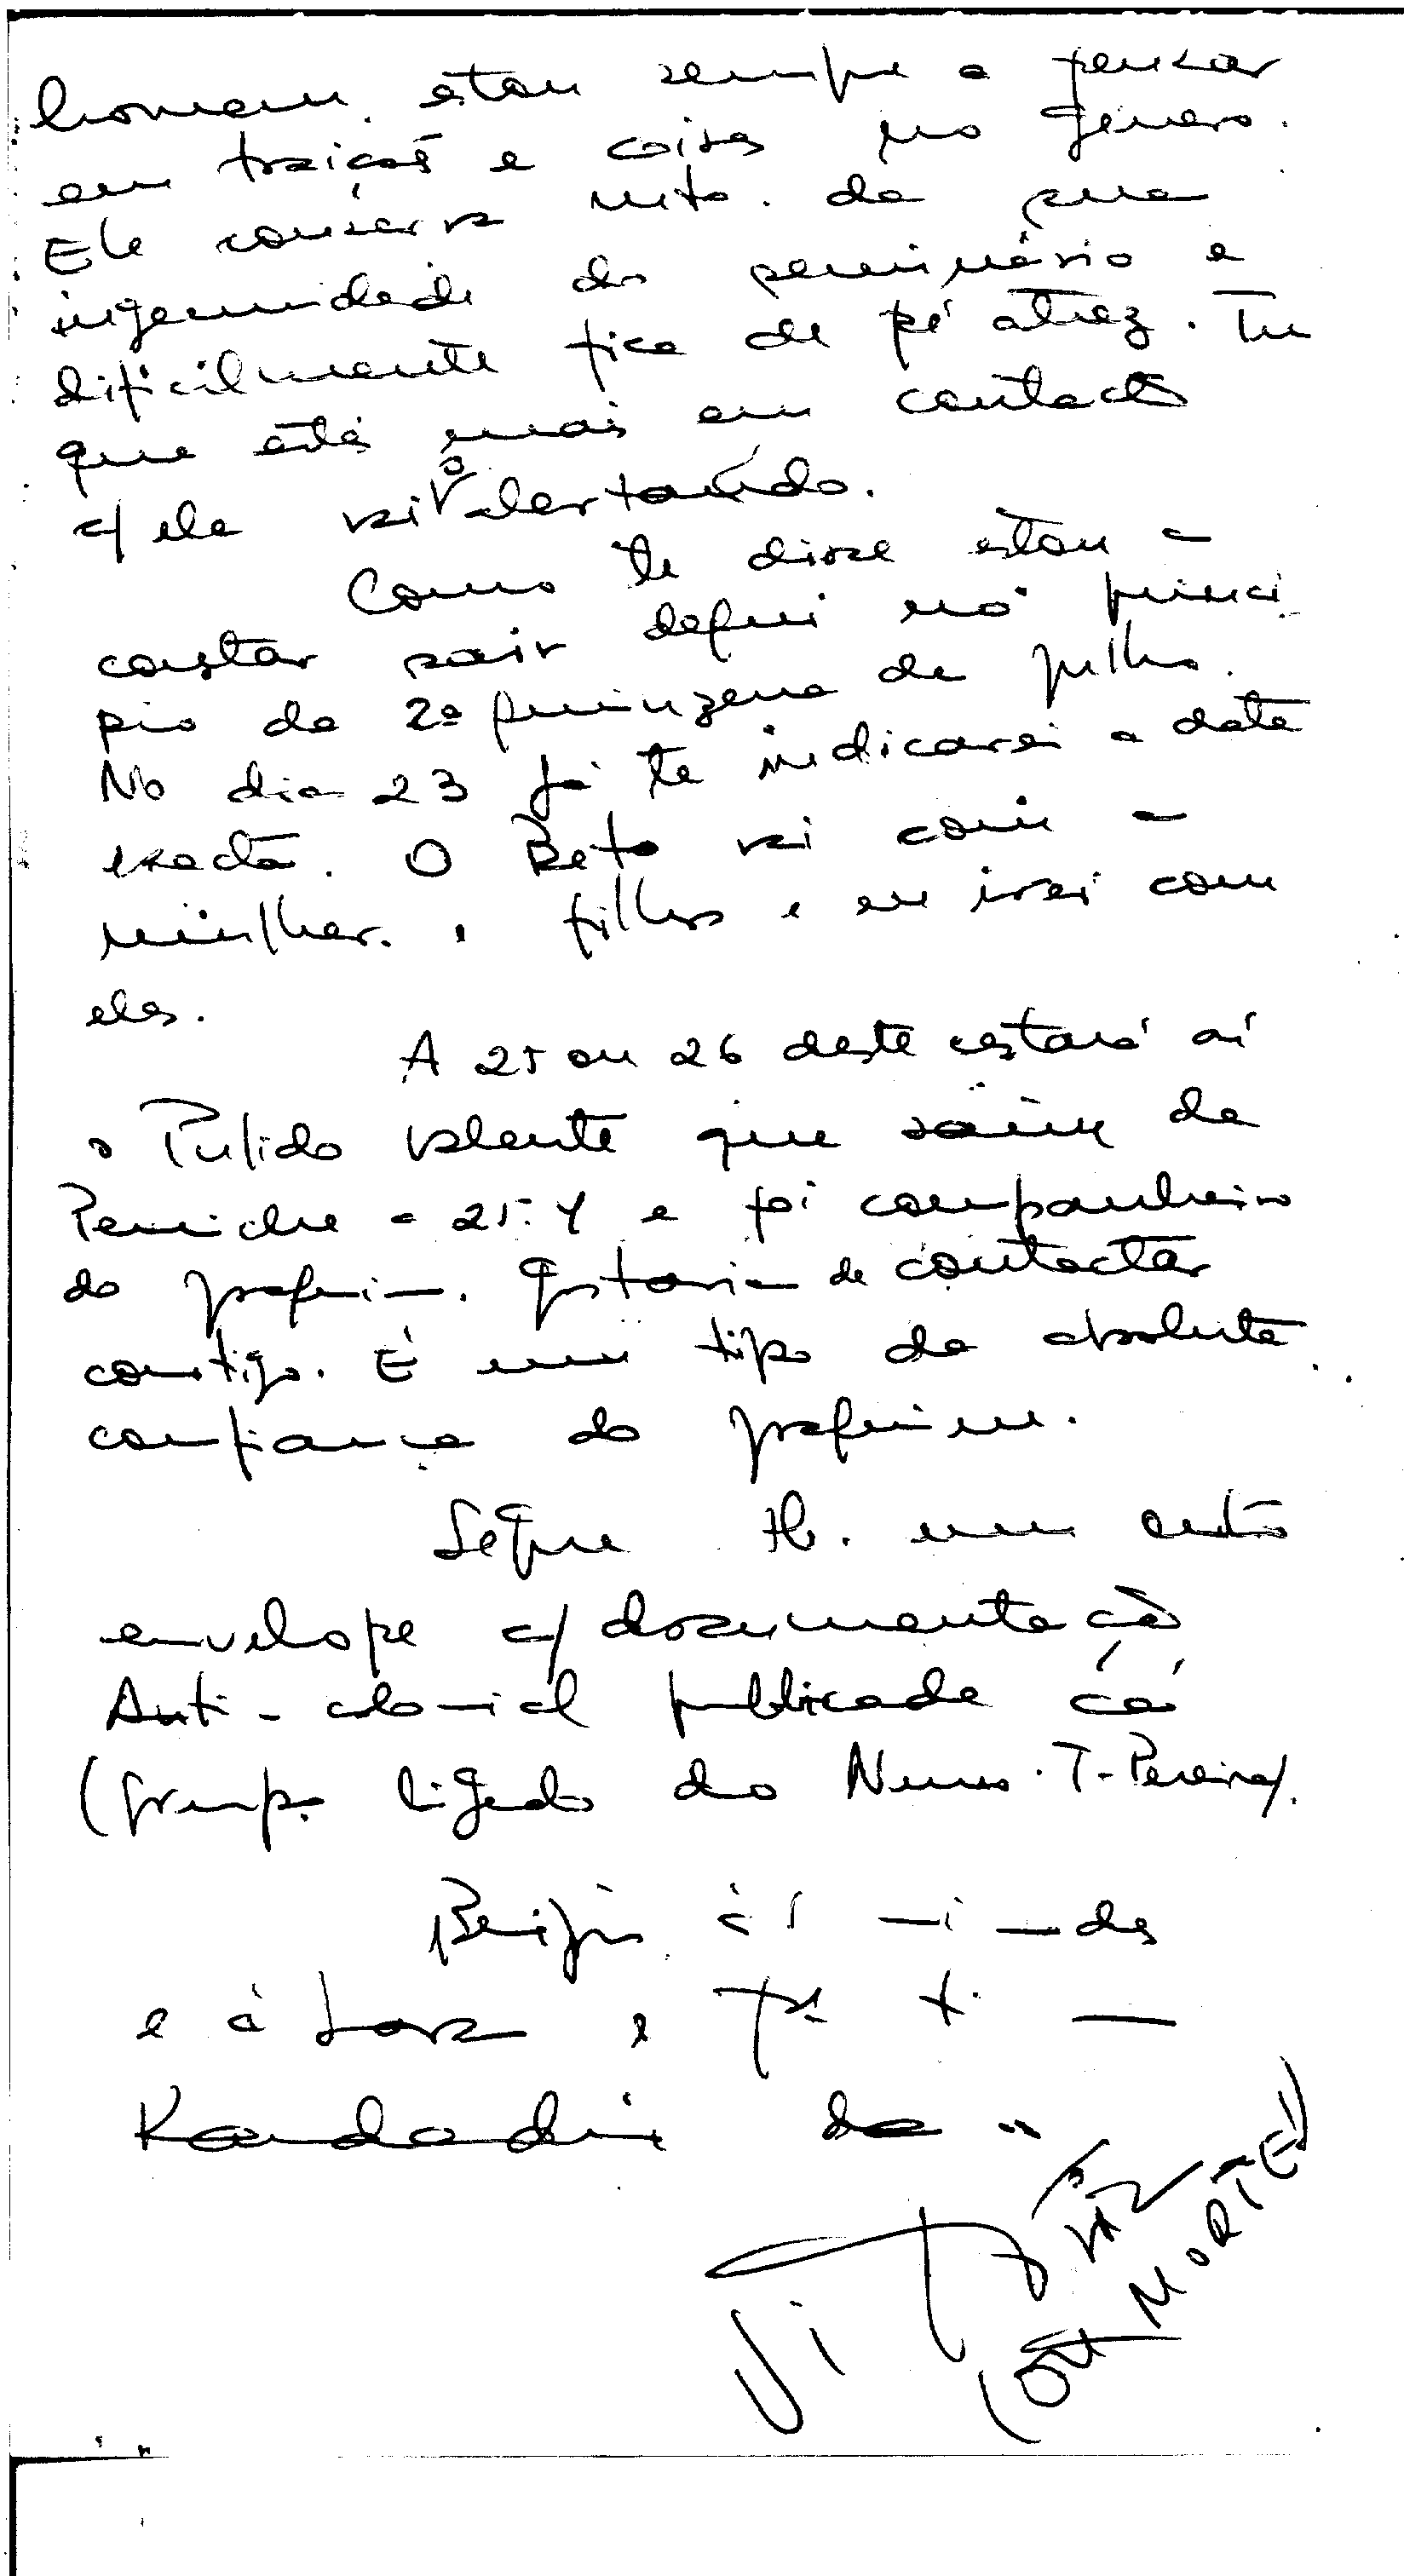 homem. estou sempre a pensar
em traição e coisas no género.
Ele conserva mto. da sua
ingenuidade do seminário e
dificilmente fica de pé atrez. Tu
que estás mais em contacto
c/ ele vai-o alertando.
Como te disse estou a
contar sair daqui no princi
pio da 2ª quinzena de julho.
No dia 23 já te indicarei a data
exacta. O Beto vai com a
mulher. e filhos e eu irei com
eles.
A 25 ou 26 deste estará aí
o Pulido Valente que saiu de
Peniche a 25.4 e foi companheiro
do Joaquim. Gostaria de contactar
contigo. É um tipo da absoluta
confiança do Joaquim.
Segue tb. um outro
envelope c/ documentação
Anti-colonial publicada cá
(grupo ligado ao Nuno T-Pereira).
Beijos
e à e
Kandandu do
Vitória
(OU MORTE!)